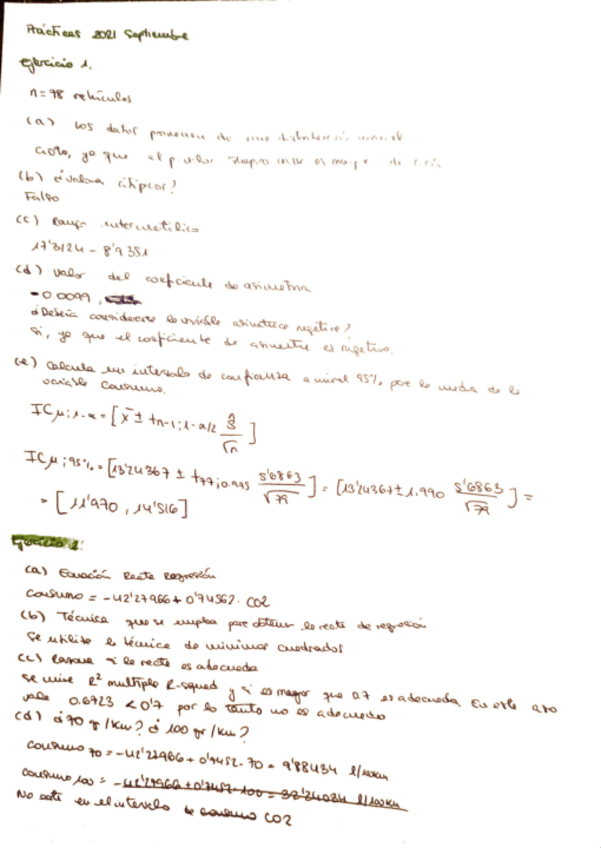 Prácticas 2021 Septiembre
Ejercicio 1.
n=78 vehículos
(a) Los datos provienen de una distribución normal
Cierto, ya que el p valor Shapiro es mayor de
(b) ¿valores atípicos?
Falso
(c) Rango intercuartílico
17'3124 - 8'9351
(d) Valor del coeficiente de asimetría
-0.0099,
¿Debería considerarse la variable asimétrica negativa?
Sí, ya que el coeficiente de asimetría es negativo.
(e) Calcula un intervalo de confianza a nivel 95% para la media de la
variable Consumo.
ICμ;1-α = [x̄ ± tn-1;1-α/2 ŝ/√n]
ICμ;95% = [13'24367 ± t77;0.975 5'6863/√78] = [13'24367 ± 1.990 5'6863/√78] =
= [11'970, 14'516]
Ejercicio 2:
(a) Ecuación Recta Regresión
Consumo = -42'27966 + 0'74562 · CO2
(b) Técnica que se emplea para obtener la recta de regresión
Se utiliza la técnica de mínimos cuadrados
(c) Razona si la recta es adecuada
Se mira R² multiple R-squared y si es mayor que 0.7 es adecuada. En este caso
vale 0.6723 < 0'7 por lo tanto no es adecuado
(d) ¿70 gr/km? ¿100 gr/km?
Consumo 70 = -42'27966 + 0'7452 · 70 = 9'88434 l/100km
Consumo 100 = -42'27966 + 0'7452 · 100 = 32'24034 l/100km
No está en el intervalo de consumo CO2